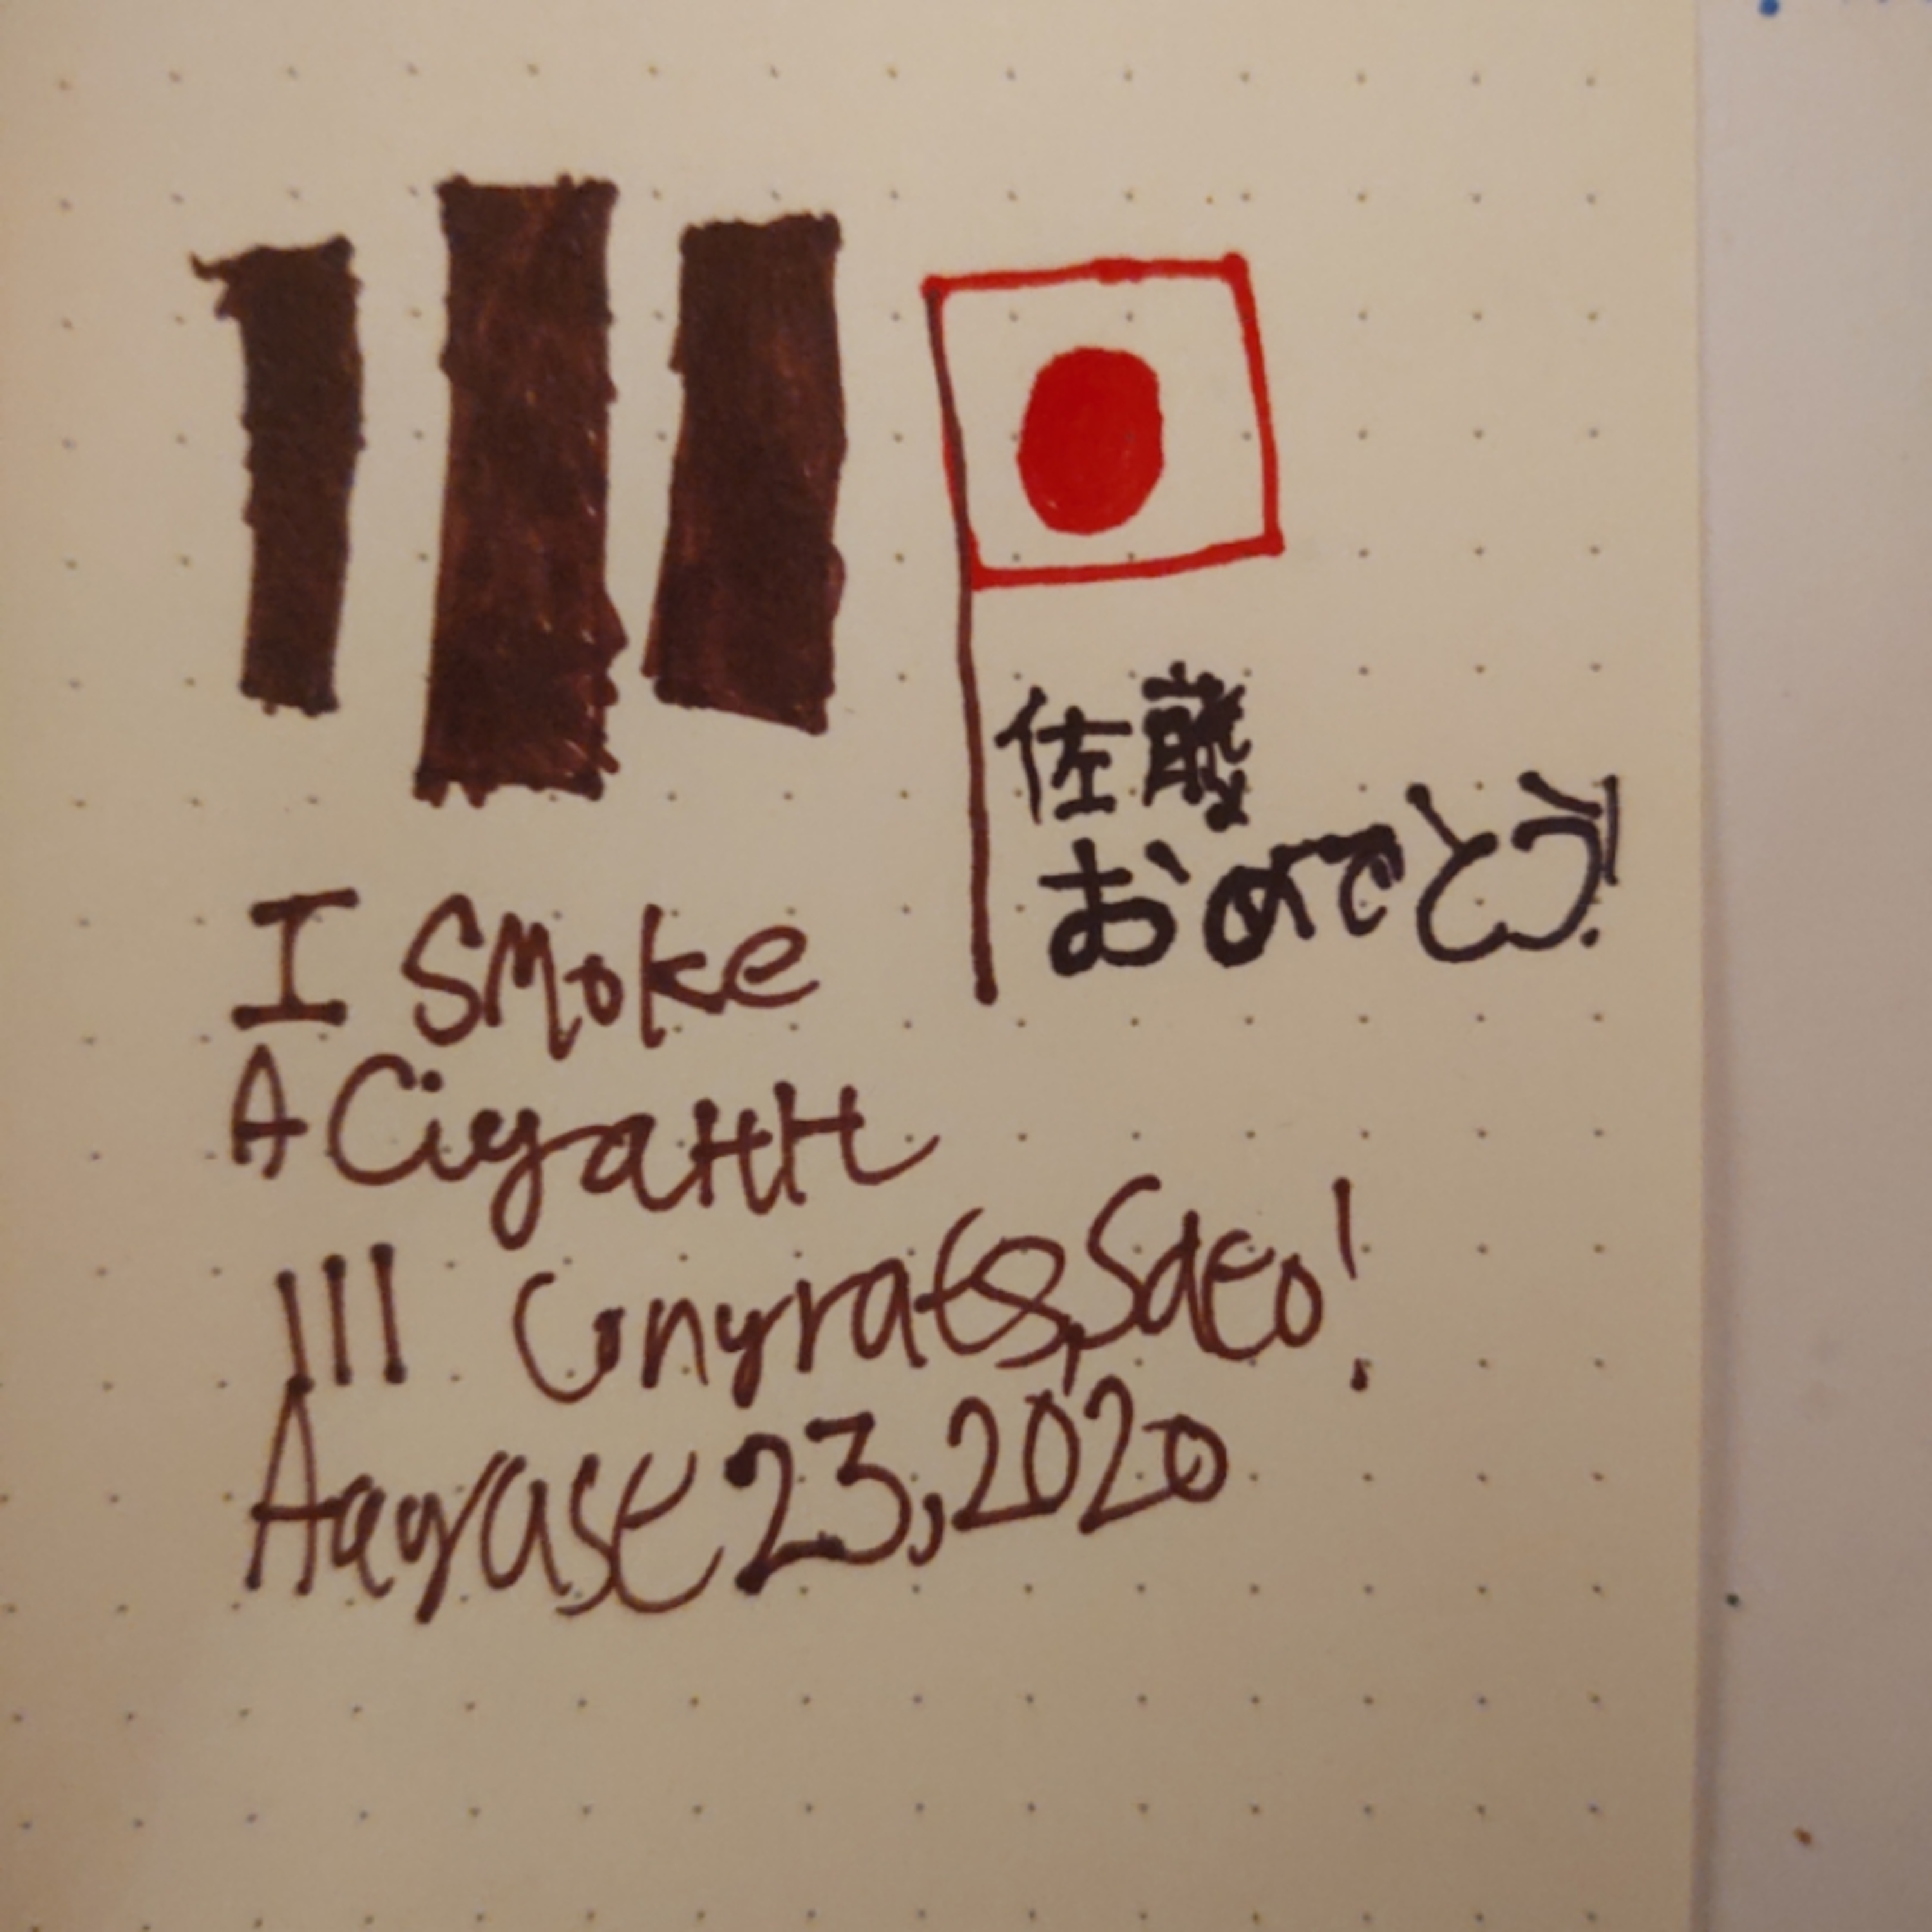 佐藤
おめでとう!
I Smoke
A Cigarttt
!!! Congrats, Sato!
August 23, 2020